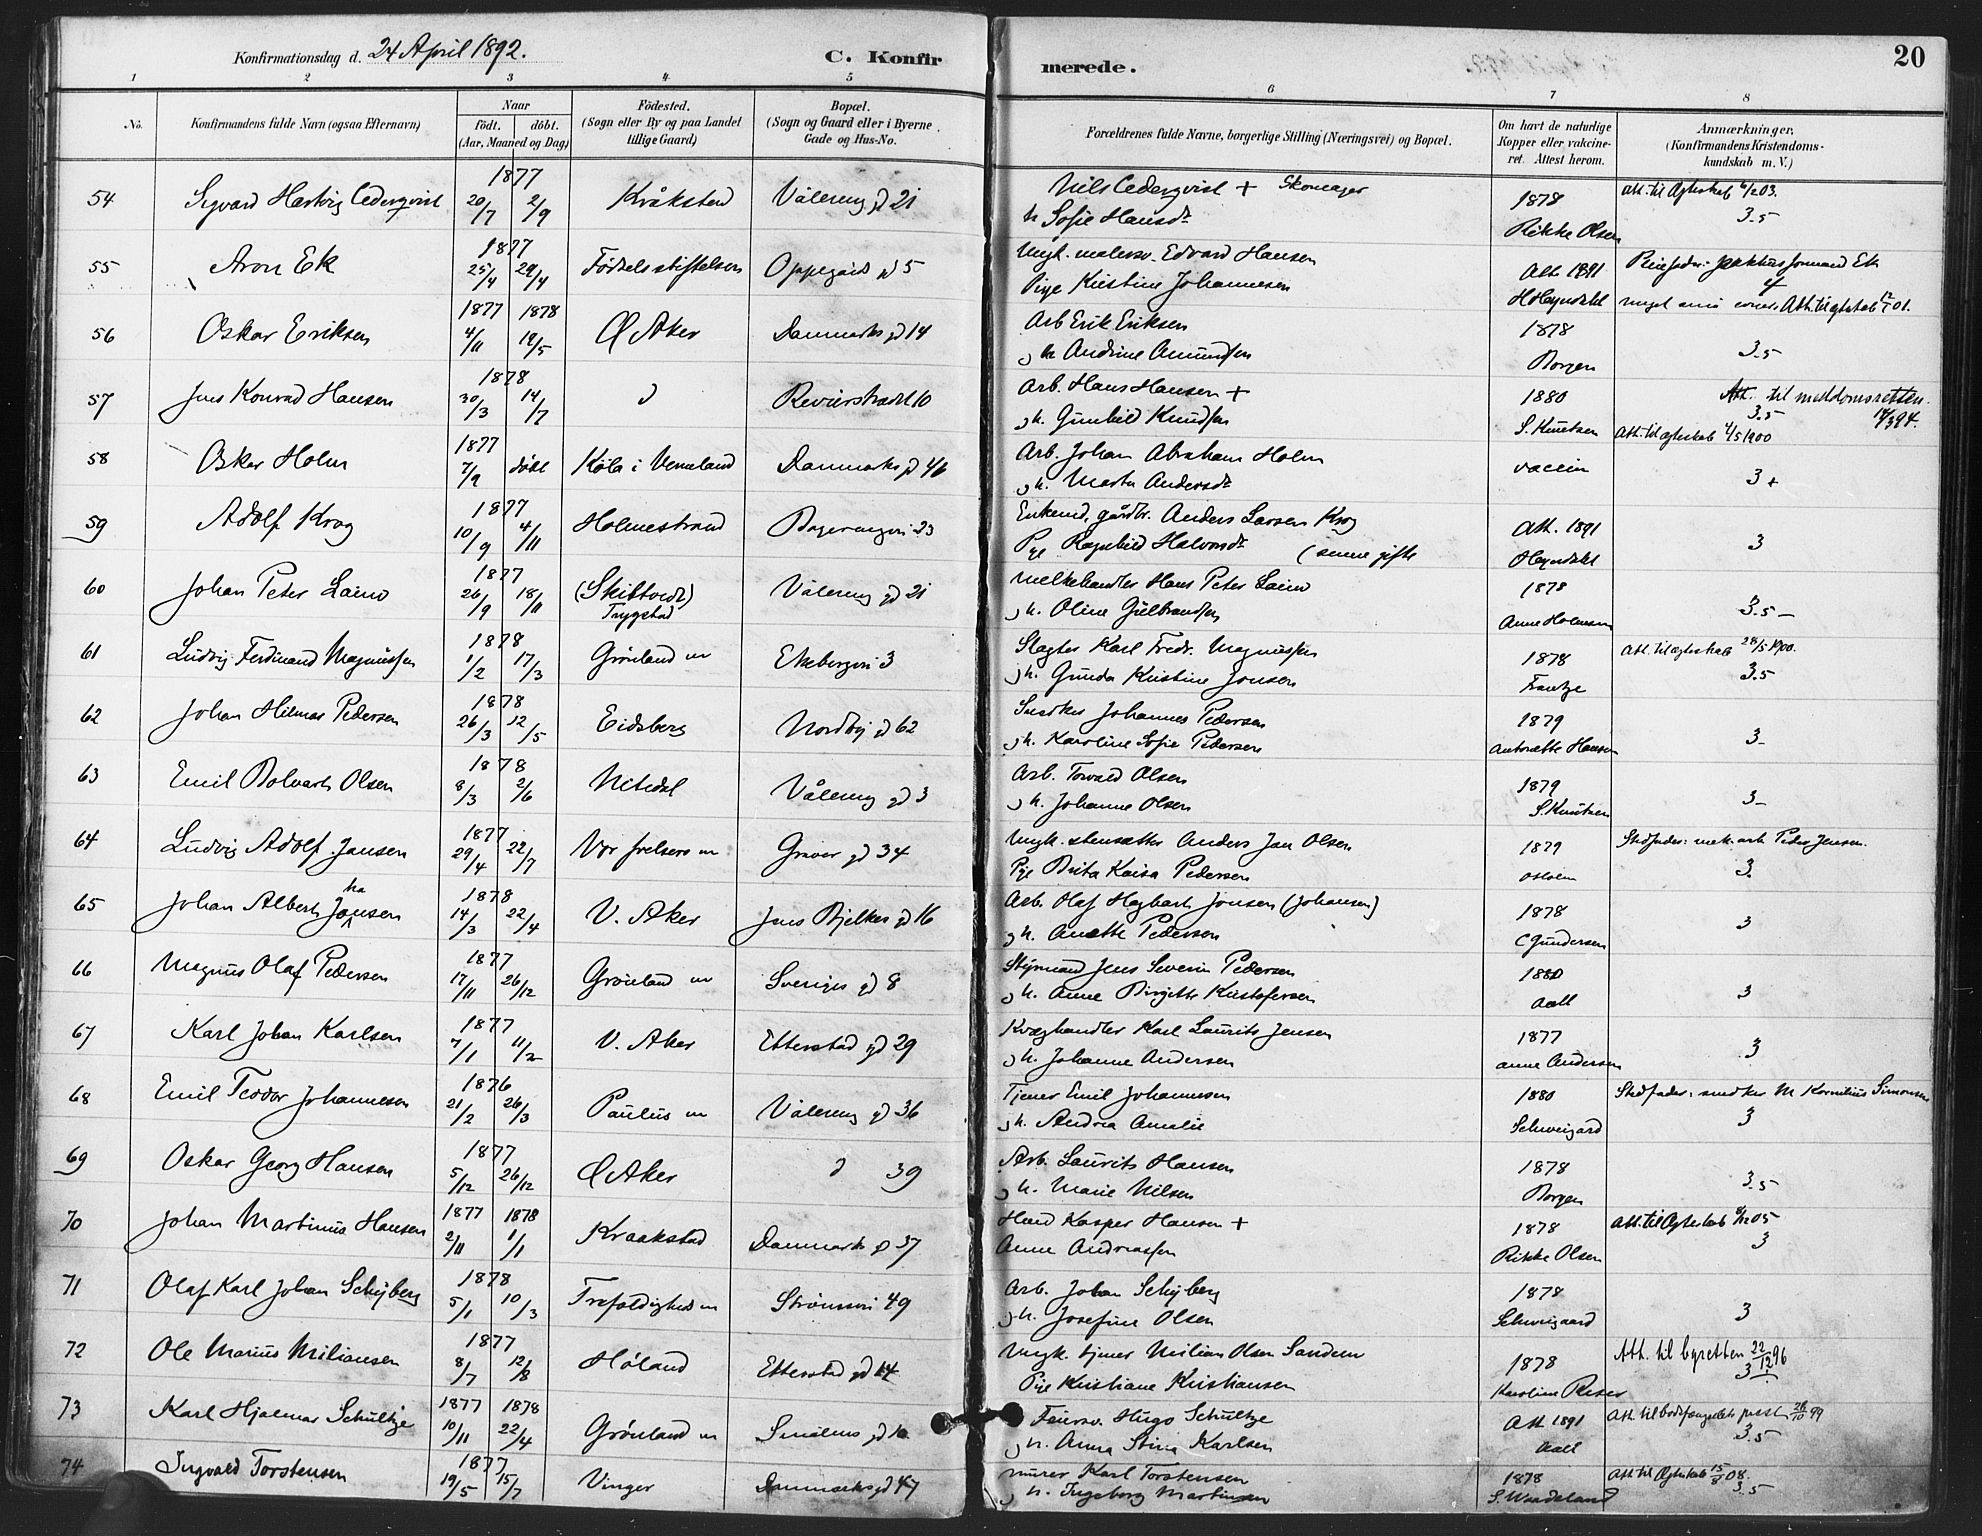 Konfirmationsdag d. 24 April 1892.
C. Konfirmerede.
20
1 2 3 4 5 6 7 8
No.
Konfirmandens fulde Navn (ogsaa Efternavn)
Naar
født. døbt.
(Aar, Maaned og Dag)
Födested.
(Sogn eller By og paa Landet
tillige Gaard)
Bopæl.
(Sogn og Gaard eller i Byerne
Gade og Hus-No.
Forældrenes fulde Navne, borgerlige Stilling (Næringsvei) og Bopæl.
Om havt de naturlige
Kopper eller vakcine-
ret. Attest herom.
Anmærkninger.
(Konfirmandens Kristendoms-
kundskab m. V.)
54 Sigvard Hartvig Cederqvist 1877 20/7 2/9 Kråkstad Vålereng gd 21 Nils Cederqvist + Skomager 1878 Att. til Ægteskab 6/2 03.
h Sofie Hansdr Rikke Olsen 3.5
55 Aron Ek 1877 25/4 29/4 Födselsstiftelsen Oppegårds gd 5 Ungk. malersv. Edvard Hansen Att. 1891
Pige Kristine Johannesen Höyndahl Att. til ægteskab 12/1 01.
56 Oskar Eriksen 1877 1878 4/11 19/5 Ø Aker Danmarks gd 14 Arb Erik Eriksen 1878
h Andrine Amundsen Borgen 3.5
57 Jens Konrad Hansen 1878 30/3 14/7 Revierstrædet 10 Arb. Hans Hansen + 1880 Att. til meddomsretten.
h. Gunhild Knudsen S. Knutsen 3.5 14/3 94.
Att. til ægteskab 4/5 1900
58 Oskar Holm 1877 7/9 døbt Köla i Vermland Danmarks gd 46 Arb. Johan Abraham Holm vaccin
h. Marta Andersdr 3+
59 Adolf Krog 1877 10/9 4/11 Holmestrand 23 Enkemd. gårdbr. Anders Larsen Krog Att. 1891
Pge Ragnhild Halvorsdr (senere gifte Höyndahl 3
60 Johan Peter 1877 26/9 18/11 (Skiptvedt) Vålereng gd 21 Melkehandler Hans Peter 1878
Trygstad h. Oline Gulbrandsen Anne Holmsen 3.5 –
61 Ludvig Ferdinand Magnussen 1878 1/2 17/3 Grönland m Ekebergvei 3 Slagter Karl Fredr. Magnussen 1878 Att. til ægteskab 28/5 1900.
h. Gunda Kristine Jonsen Frantze 3.5
62 Johan Hilmar Pedersen 1878 26/3 12/5 Eidsberg Nordby gd 62 Snedker Johannes Pedersen 1879
h. Karoline Sofie Pedersen Antonette Hansen 3-
63 Emil Bolvart Olsen 1878 8/3 2/6 Nitedal Vålereng gd 3 Arb. Torvald Olsen 1879
h. Johanne Olsen S. Knutsen 3-
64 Ludvig Adolf Jansen 1877 29/4 22/7 Vor frelsers m Graver gd 34 Ungk. stensætter Anders Jan Olsen 1879 Stedfader: mek. arb Peder Jensen.
Pge Brita Kaisa Pedersen Osholm 3.
65 Johan Albert Jo^ha nsen 1878 14/3 22/4 V. Aker Jens Bjelkes gd 16 Arb. Olaf Hagbart Jonsen (Johansen) 1878
h. Anette Pedersen C Gundersen 3
66 Magnus Olaf Pedersen 1877 17/11 26/12 Grönland m Sveriges gd 8 Styrmand Jens Severin Pedersen 1880
h. Anne Birgitte Kristofersen Aall 3
67 Karl Johan Karlsen 1877 7/1 11/2 V. Aker Etterstad gd 29 Kvæghandler Karl Laurits Jensen 1877
h. Johanne Andersen Anne Andersen 3
68 Emil Teodor Johannesen 1876 21/2 26/3 Paulus m Vålereng gd 36 Tjener Emil Johannesen 1880 Stedfader: snedker M Kornelius Simonsen
h. Andrea Amalie Schweigaard 3
69 Oskar Georg Hansen 1877 5/12 26/12 Ø Aker 39 Arb. Laurits Hansen 1878
h. Marie Nilsen Borgen 3.5
70 Johan Martinius Hansen 1877 1878 2/11 1/1 Kraakstad Danmarks gd 37 Husmd Kasper Hansen + 1878 Att. til Ægteskab 8/12 05
Anne Andreassen Rikke Olsen 3
71 Olaf Karl Johan Schyberg 1878 5/1 10/3 Trefoldigheds m Strömsvei 49 Arb. Johan Schyberg 1878
h. Josefine Olsen Schweigaard 3
72 Ole Marius Miliansen 1877 8/7 12/8 Höland Etterstad gd 14 Ungk. tjener Milian Olsen Sanden 1878 Att. til byretten 22/12 96
Pige Kristiane Kristiansen Karoline Riser 3-
73 Karl Hjalmar Schultze 1877 1878 10/11 22/4 Grönland m Smålens gd 10 Feiersv. Hugo Schultze Att 1891 Att. til bodsfængselets prest 26/10 99
h. Anna Stina Karlsen Aall 3.5
74 Ingvald Torstensen 1877 19/5 15/7 Vinger Danmarks gd 47 Murer Karl Torstensen 1878 Att til Ægteskab 15/8 08.
h. Ingeborg Martinsen S. Waadeland 3.5